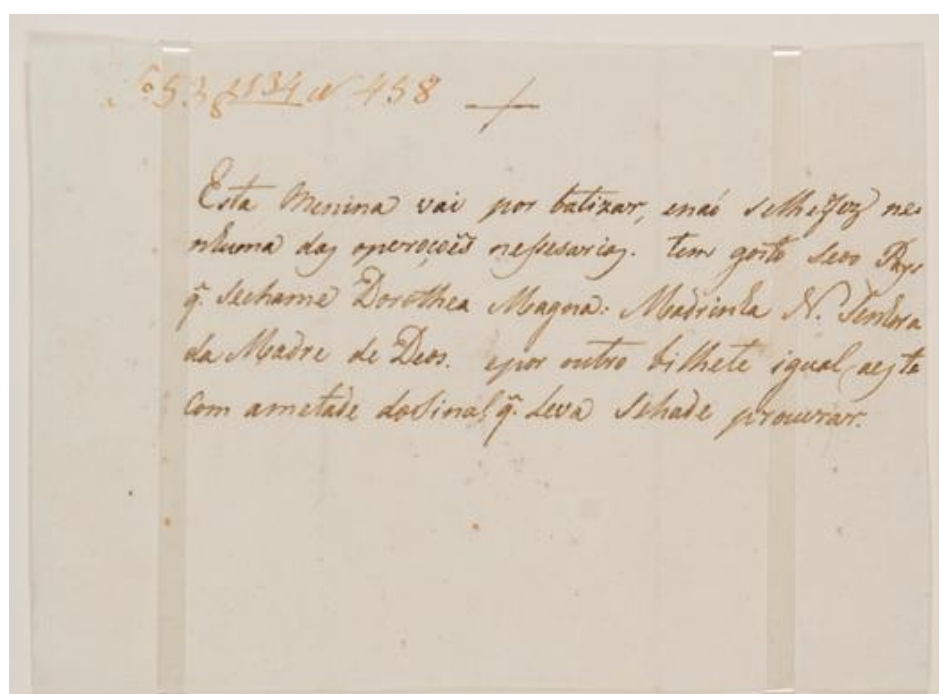 53 f 134 N 458
Esta Menina vai por batizar, enaó selhefez ne=
nhuma das operoçoẽs nessesarias. tem gosto seos Pays
q̃. sechame Dorothea Magna. Madrinha N. Senhora
da Madre de Deos. epor outro bilhete igual aeste
Com ametade dosinal q̃. Leva sehade procurar.